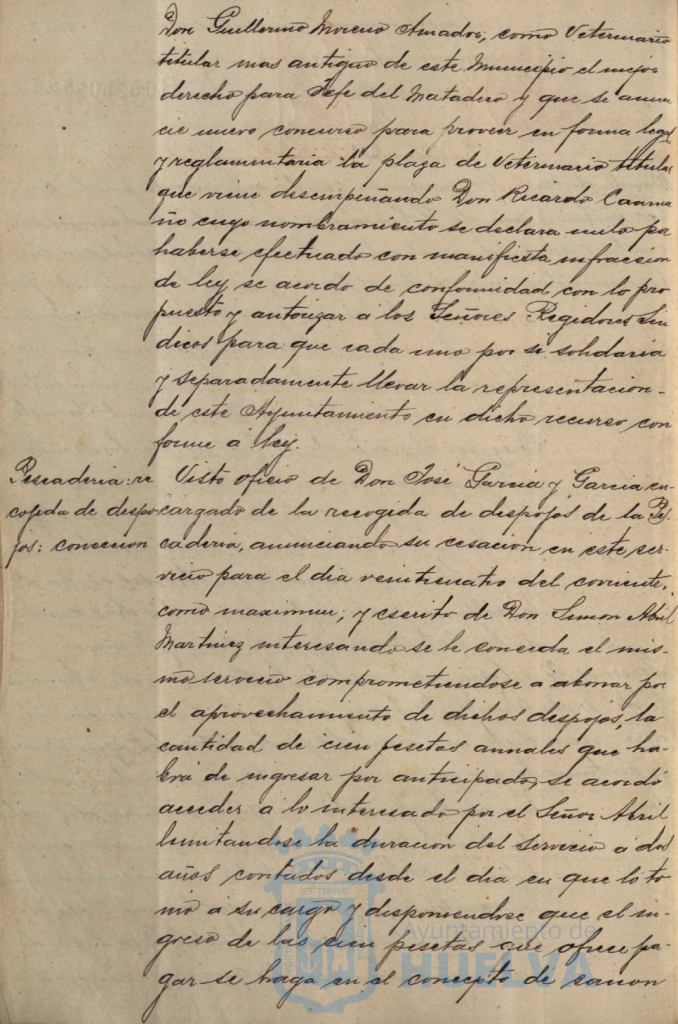 Don Guillermo Moreno Amador, como Veterinario
titular mas antiguo de este Municipio el mejor
derecho para Jefe del Matadero y que se anun
cie nuevo concurso para proveer en forma legal
y reglamentaria la plaza de Veterinario titular
que viene desempeñando Don Ricardo Caama
ño cuyo nombramiento se declara nulo por
haberse efectuado con manifiesta infracsion
de ley, se acordo de conformidad con lo pro
puesto y autorizar a los Señores Regidores Sin
dicos para que cada uno por si solidaria
y separadamente llevar la representacion
de este Ayuntamiento en dicho recurso con
forme á ley.
Pescaderia: re
cojida de despo
jos: concecion
Visto oficio de Don José Garcia y Garcia en-
cargado de la recogida de despojos de la Pes
caderia, anunciando su cesación en este ser-
vicio para el dia veinticuatro del corriente,
como maximun; y escrito de Don Simon Abril
Martinez interesando se le conceda el mis-
mo servicio comprometiendose a abonar por
el aprovechamiento de dichos despojos, la
cantidad de cien pesetas anuales que ha-
brá de ingresar por anticipado, se acordó
acceder a lo interesado por el Señor Abril
limitandose la duracion del servicio a dos
años contados desde el dia en que lo to
mó a su cargo y disponiendose que el in-
greso de las cien pesetas que ofrece pa-
gar se haga en el concepto de canon
ET TERRA
Ayuntamiento de
HUELVA